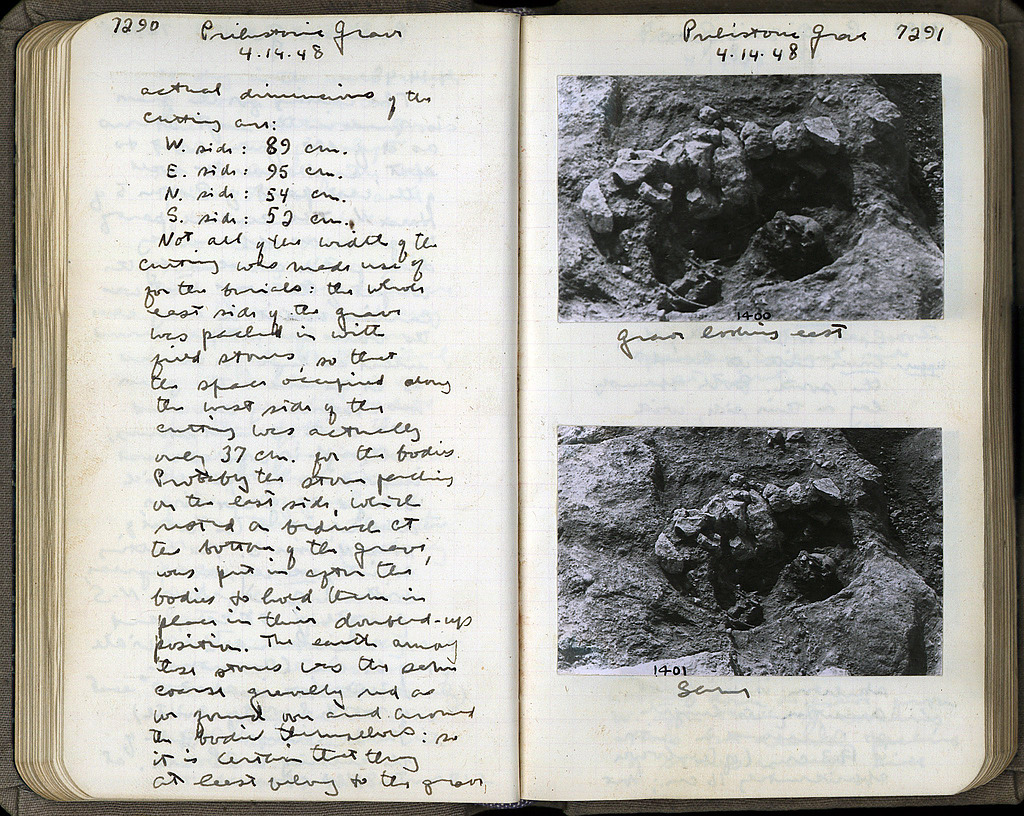 7290 Prehistoric Grave
4.14.48
actual dimensions of the
cutting are:
W. side: 89 cm.
E. side: 95 cm.
N. side: 54 cm.
S. side: 52 cm.
Not all of the width of the
cutting was made use of
for the burials: the whole
east side of the grave
was packed in with
field stones, so that
the space occupied along
the west side of the
cutting was actually
only 37 cm. for the bodies.
Probably the stone packing
on the east side, which
rested on bedrock at
the bottom of the grave,
was put in after the
bodies to hold them in
place in their doubled-up
position. The earth among
these stones was the same
coarse gravelly red as
we found over and around
the bodies themselves: so
it is certain that they
at least belong to the grave,
Prehistoric Grave 7291
4.14.48
1400
grave looking east
1401
Same